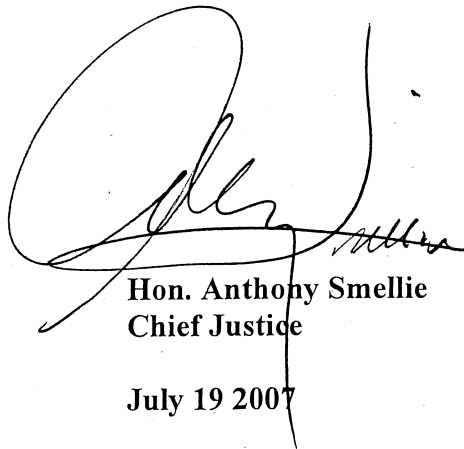 Hon. Anthony Smellie
Chief Justice
July 19 2007